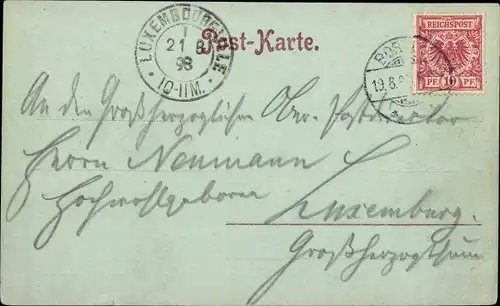 LUXEMBOURG-VILLE
21 8
98
10-11M.
Post-Karte.
REICHSPOST
PF. 10 PF.
19.8.9
An den Großherzoglichen Ober-Postdirektor
Herrn Neumann
Hochwohlgeboren
Luxemburg.
Großherzogthum